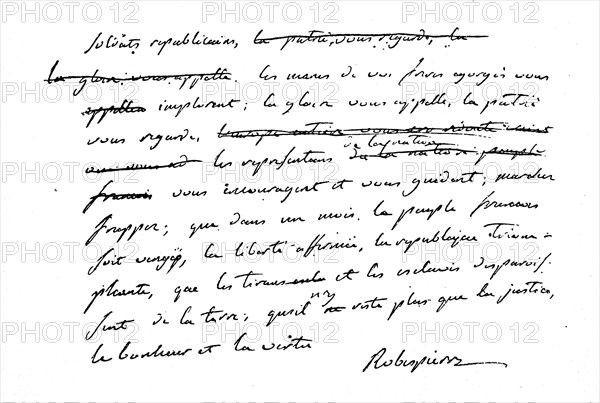 Soldats republicains, la patrie vous regarde, la
la gloire vous appelle. les manes de vos freres egorgés vous
appellent implorent; la gloire vous appelle, la patrie
vous regarde,
de la nation
les representans de la nation peuple
francois vous encouragent et vous guident; marchez
frappez; que dans un mois le peuple francois
soit vengé, la liberté affirmie, la republique triom-
phante, que les tirans et les esclaves disparois-
sent de la terre; qu'il
n'y
ne reste plus que la justice,
le bonheur et la vertu
Robespierre
PHOTO 12